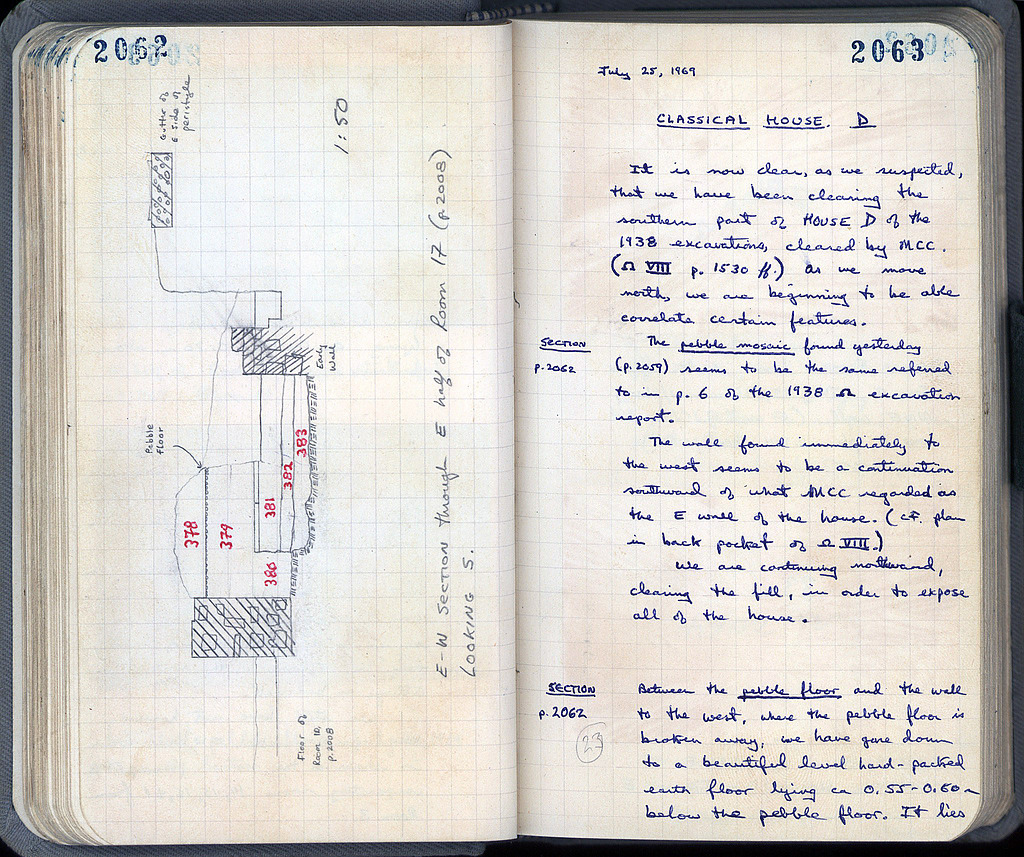 2062
Gutter of
E side of
peristyle
1:50
Early
Wall
Pebble
floor
378
379
380
381
382
383
E-W Section through E half of Room 17 (p.2008)
LOOKING S.
Floor of
Room 10,
p.2008
2063
July 25, 1969
CLASSICAL HOUSE D
It is now clear, as we suspected,
that we have been clearing the
southern part of HOUSE D of the
1938 excavations, cleared by MCC.
(Ω VIII p. 1530 ff.) As we move
north, we are beginning to be able
correlate certain features.
SECTION
p.2062
The pebble mosaic found yesterday
(p.2059) seems to be the same referred
to in p. 6 of the 1938 Ω excavation
report.
The wall found immediately to
the west seems to be a continuation
southward of what MCC regarded as
the E wall of the house. (cf. plan
in back pocket of Ω VIII.)
We are continuing northward,
clearing the fill, in order to expose
all of the house.
SECTION
p.2062
23
Between the pebble floor and the wall
to the west, where the pebble floor is
broken away, we have gone down
to a beautiful level hard-packed
earth floor lying ca 0.55-0.60m
below the pebble floor. It lies